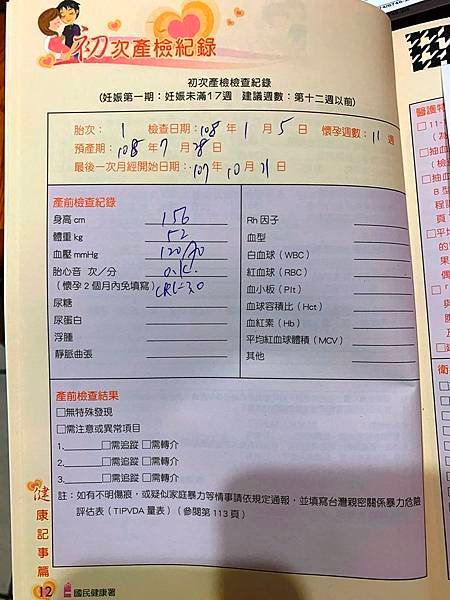 初次產檢紀錄
初次產檢檢查紀錄
(妊娠第一期：妊娠未滿17週 建議週數：第十二週以前)
胎次： 1 檢查日期：108 年 1 月 5 日 懷孕週數：11 週
預產期：108 年 7 月 28 日
最後一次月經開始日期：107 年 10 月 21 日
產前檢查紀錄
身高 cm 156
體重 kg 52
血壓 mmHg 120/70
胎心音 次／分 O.K.
(懷孕 2 個月內免填寫) CRL=3.0
尿糖
尿蛋白
浮腫
靜脈曲張
Rh 因子
血型
白血球（WBC）
紅血球（RBC）
血小板（Plt）
血球容積比（Hct）
血紅素（Hb）
平均紅血球體積（MCV）
其他
產前檢查結果
□無特殊發現
□需注意或異常項目
1.□需追蹤 □需轉介
2.□需追蹤 □需轉介
3.□需追蹤 □需轉介
註：如有不明傷痕，或疑似家庭暴力等情事請依規定通報，並填寫台灣親密關係暴力危險
評估表（TIPVDA 量表）（參閱第 113 頁）
健康記事篇
12 國民健康署
醫護特
□11-
□抽血
(檢
□抽血
B 型
程
頁
□平均
的
果
偶